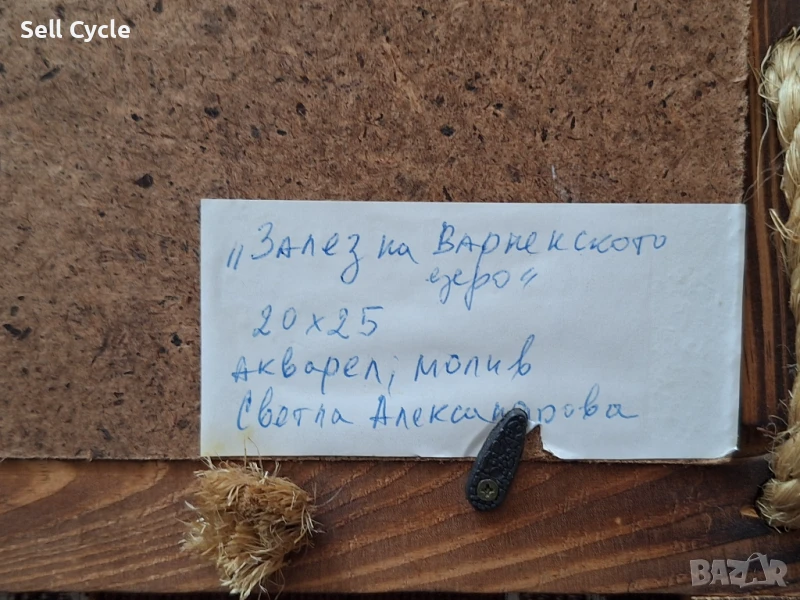 Sell Cycle
„Залез на Варненското
езеро"
20x25
акварел; молив
Светла Александрова
BAZAR